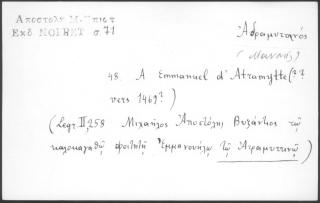 Ἀποστόλη Μ. Ἐπιστ
Ἐκδ NOIRET σ. 71
Ἀδραμυτηνός
(Μανουήλ)
48. A Emmanuel d'Atramytte (??
vers 1469?)
(Legr. II, 258 Μιχαῆλος Ἀποστόλης Βυζάντιος τῷ
καλοκαγαθῷ φοιτητῇ Ἐμμανουήλῳ τῷ Ἀτραμυττηνῷ)